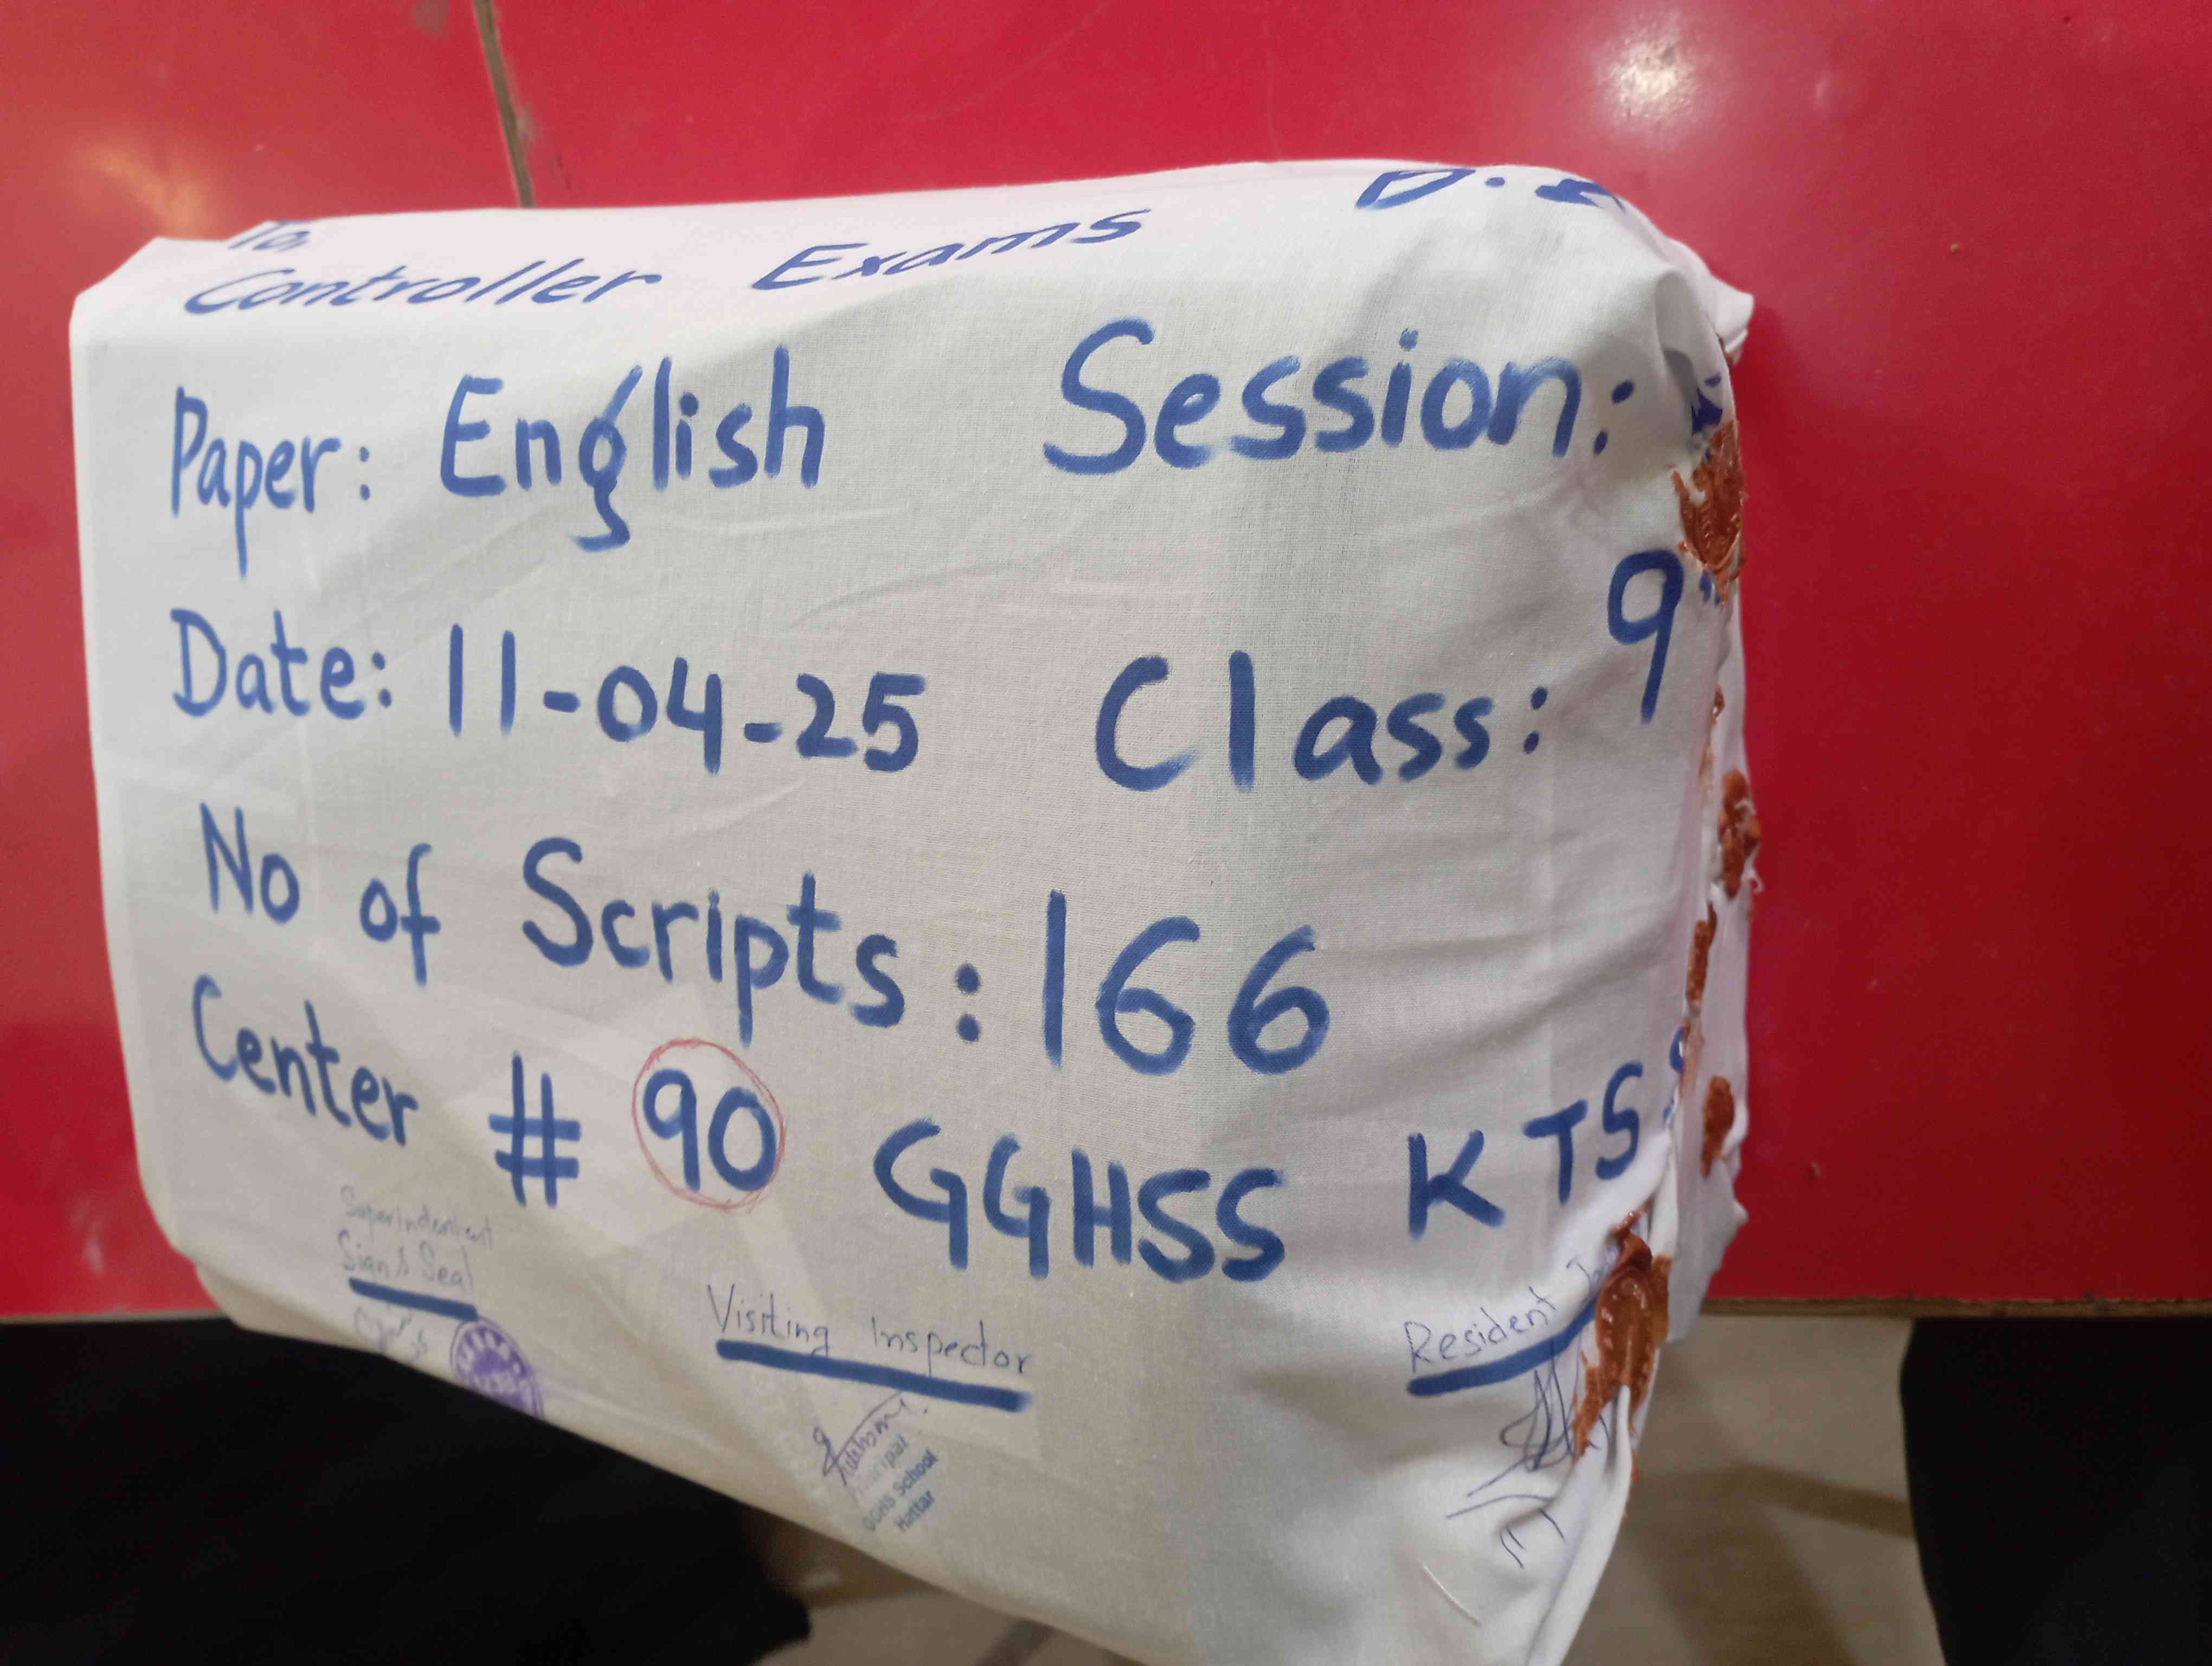 To,
Controller Exams
Paper: English Session:
Date: 11-04-25 Class: 9
No of Scripts: 166
Center # 90 GGHSS KTS
Superindentent
Sign & Seal
Visiting Inspector
Resident
Principal
GGHS School
Hattar